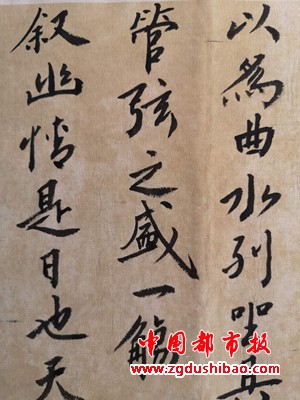 以為曲水列坐其
管弦之盛一觴
叙幽情是日也天
中国都市报
www.zgdushibao.com